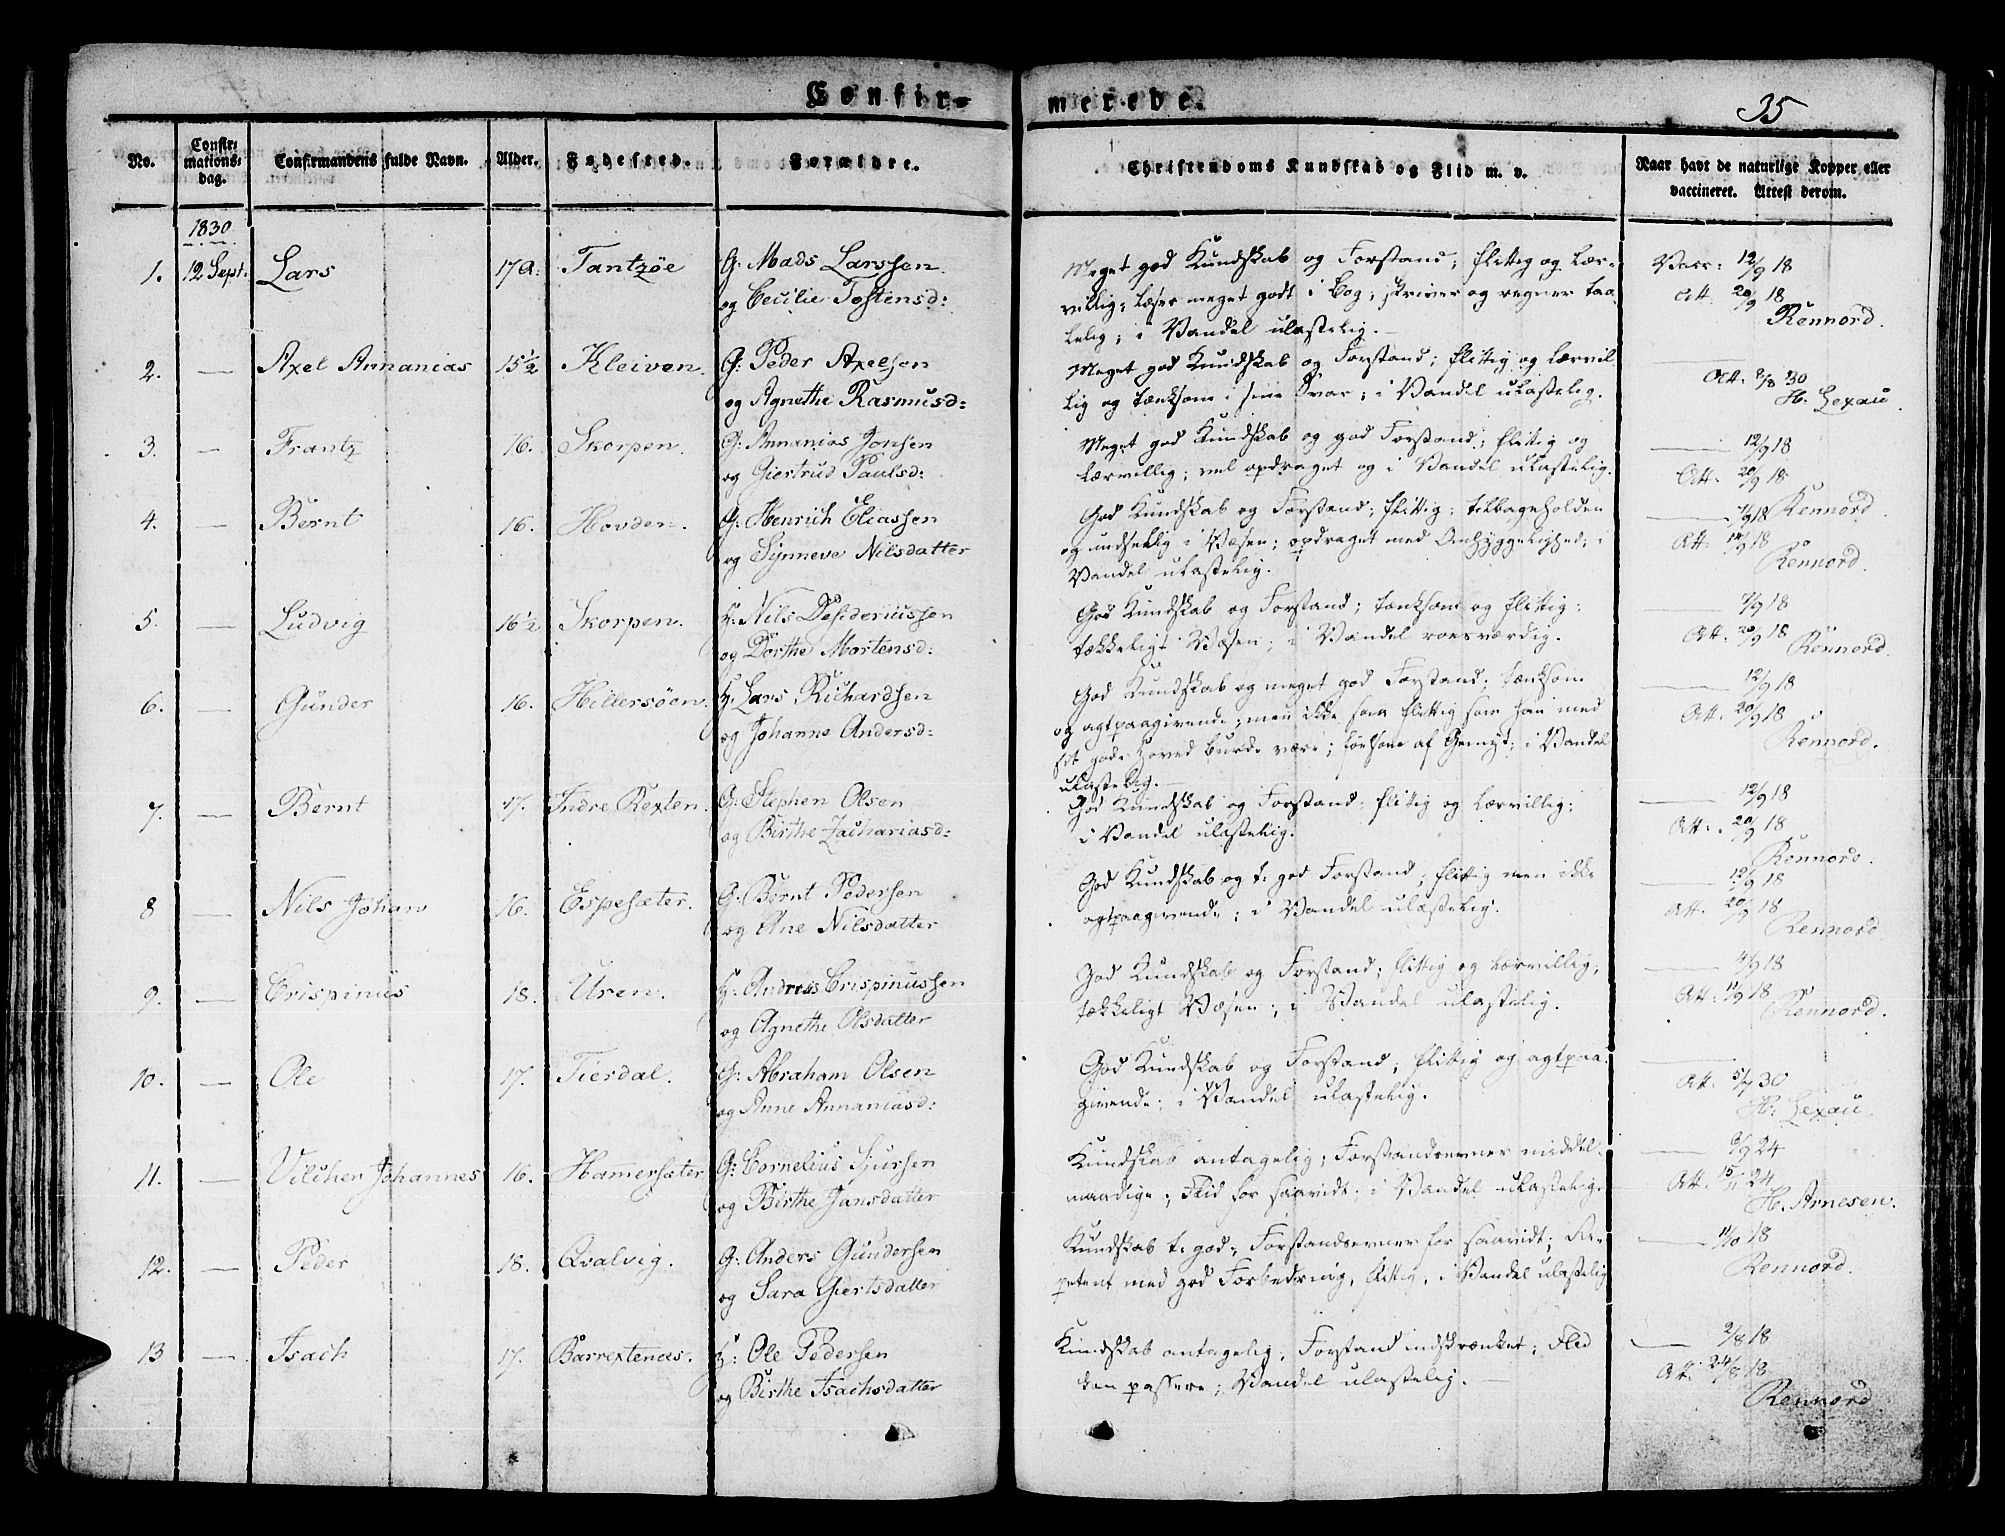 Confir-
merede.
35
No.
Confir-
mations-
dag.
Confirmandens fulde Navn.
Alder.
Fødested.
Forældre.
Christendoms Kundskab og Flid m. v.
Naar havt de naturlige Kopper eller
vaccineret. Attest derom.
1830
1. 12 Sept. Lars 17 a. Tantzöe G: Mads Larssen
og Cecilie Tostensd:
Meget god Kundskab og Forstand; flittig og lær-
villig; læser meget godt i Bog; skriver og regner taa-
lelig; i Vandel ulastelig.
Vacc: 12/9 18
Att. 20/9 18
Rennord.
2. — Axel Annanias 15½ Kleiven. G: Peder Axelsen
og Agnethe Rasmusd:
Meget god Kundskab og Forstand; flittig og lærvil
lig og tænksom i sine Svar; i Vandel ulastelig.
Att. 2/8 30
H. Lexau.
3. — Frantz 16. Skorpen. G: Annanias Jonsen
og Giertrud Paulsd:
Meget god Kundskab og god Forstand; flittig og
lærvillig; vel opdraget og i Vandel ulastelig.
— 12/9 18
Att. 20/9 18
Rennord
4. — Bernt 16. Hovden. G: Henrich Eliassen
og Synneve Nilsdatter
God Kundskab og Forstand; flittig; tilbageholden
og undselig i Væsen; opdraget med Omhyggelighed; i
Vandel ulastelig.
— 7/9 18
Att: 18
Rennord.
5. — Ludvig 16½ Skorpen. H: Nils Desideriussen
og Dorthe Mortensd:
God Kundskab og Forstand; tænksom og flittig;
tækkeligt Væsen; i Vandel roesværdig.
— 7/9 18
Att. 20/9 18
Rennord.
6. — Gunder 16. Hillersöen. H. Lars Richardsen
og Johanne Andersd:
God Kundskab og meget god Forstand; tænksom
og agtpaagivende; men ikke saa flittig som han med
sit gode Hoved burde være; af Gemyt; i Vandel
ulastelig.
— 12/9 18
Att. 20/9 18
Rennord.
7. — Bernt 17. Indre Rexten. G: Stephen Olsen
og Birthe Zachariasd:
God Kundskab og Forstand; flittig og lærvillig;
i Vandel ulastelig.
— 12/9 18
Att. 20/9 18
Rennord.
8 — Nils Johan 16. Espesæter. G: Bernt Pedersen
og Ane Nilsdatter
God Kundskab og t. god Forstand; flittig men ikke
agtpaagivende; i Vandel ulastelig.
— 12/9 18
Att. 20/9 18
Rennord
9. — Crispinus 18. Uren. H: Andreas Crispinussen
og Agnethe Olsdatter
God Kundskab og Forstand; flittig og lærvillig;
tækkeligt Væsen; i Vandel ulastelig.
— 4/9 18
Att: 11/9 18
Rennord.
10. — Ole 17. Tierdal. G: Abraham Olsen
og Anne Annaniasd:
God Kundskab og Forstand; flittig og agtpaa
givende; i Vandel ulastelig.
Att. 5/7 30
H: Lexau
11. — Vilcher Johannes 16. Hamersæter G: Cornelius Sjursen
og Birthe Jansdatter
Kundskab antagelig; Forstandsevner middel-
maadige; Flid for saavidt; i Vandel ulastelig.
— 6/9 24
Att. 15/11 24
H. Arnesen.
12. — Peder 18. Qvalvig. G: Anders Gundersen
og Sara Giertsdatter
Kundskab t. god; Forstandsevner for saavidt; Re-
petent med god Forbedring, flittig, i Vandel ulastelig
— 11/10 18
Rennord.
13 — Isach 17. Barrextenæs. H: Ole Pedersen
og Birthe Isachsdatter
Kundskab antagelig, Forstand indskrænket; Flid
kan passere; Vandel ulastelig. —
— 2/8 18
Att. 24/8 18
Rennord